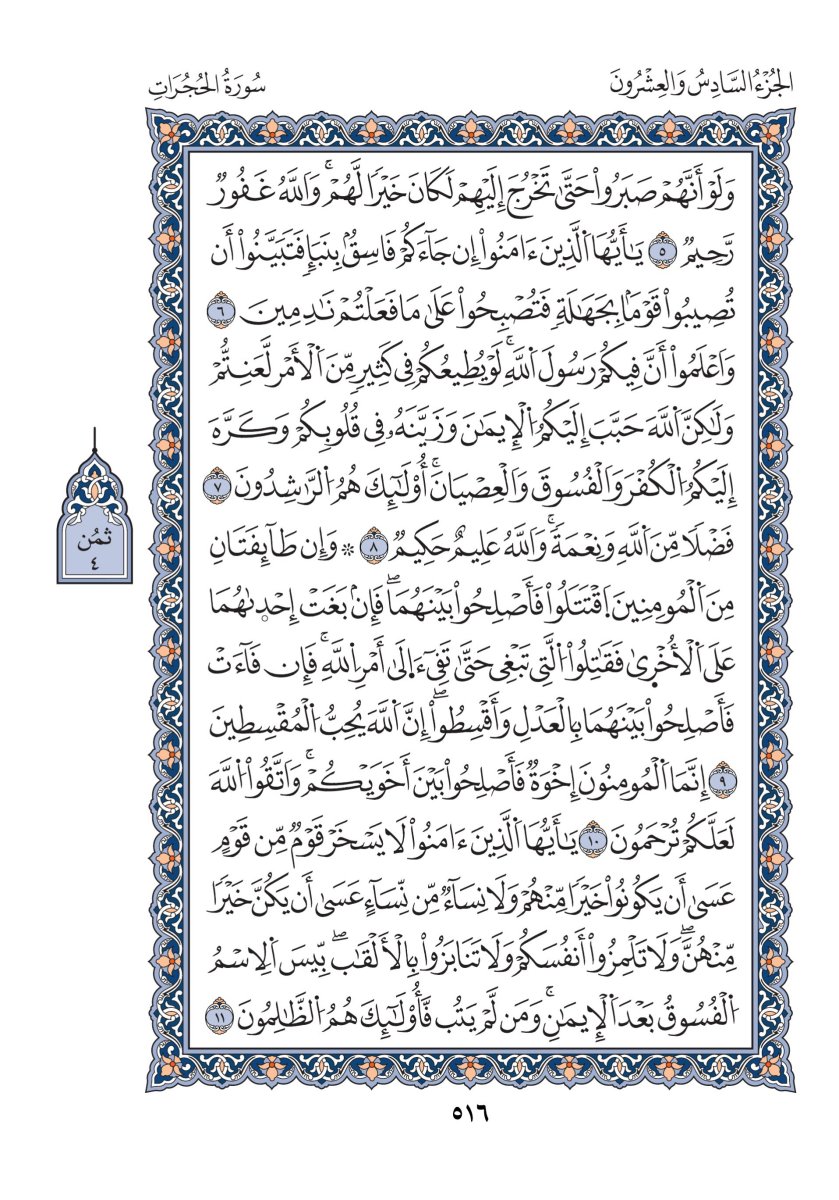 الجُزْءُ السَّادِسُ وَالعِشْرُونَ
سُورَةُ الحُجُرَاتِ
وَلَوْ أَنَّهُمْ صَبَرُواْ حَتَّىٰ تَخْرُجَ إِلَيْهِمْ لَكَانَ خَيْرٗا لَّهُمْۚ وَاللَّهُ غَفُورٞ
رَّحِيمٞ ٥ يَٰأَيُّهَا اَلَّذِينَ ءَامَنُواْ إِن جَآءَكُمْ فَاسِقُۢ بِنَبَإٖ فَتَبَيَّنُواْ أَن
تُصِيبُواْ قَوْمَۢا بِجَهَٰلَةٖ فَتُصْبِحُواْ عَلَىٰ مَا فَعَلْتُمْ نَٰدِمِينَ ٦
وَاعْلَمُواْ أَنَّ فِيكُمْ رَسُولَ اَللَّهِۚ لَوْ يُطِيعُكُمْ فِي كَثِيرٖ مِّنَ اَلْأَمْرِ لَعَنِتُّمْ
وَلَٰكِنَّ اَللَّهَ حَبَّبَ إِلَيْكُمُ اُلْإِيمَٰنَ وَزَيَّنَهُۥ فِي قُلُوبِكُمْ وَكَرَّهَ
إِلَيْكُمُ اُلْكُفْرَ وَالْفُسُوقَ وَالْعِصْيَانَۚ أُوْلَٰٓئِكَ هُمُ اُلرَّٰشِدُونَ ٧
فَضْلٗا مِّنَ اَللَّهِ وَنِعْمَةٗۚ وَاللَّهُ عَلِيمٌ حَكِيمٞ ٨ ۞ وَإِن طَآئِفَتَانِ
مِنَ اَلْمُومِنِينَ اَقْتَتَلُواْ فَأَصْلِحُواْ بَيْنَهُمَاۖ فَإِنۢ بَغَتْ إِحْدَىٰهُمَا
عَلَى اَلْأُخْرَىٰ فَقَٰتِلُواْ اُلَّتِي تَبْغِي حَتَّىٰ تَفِيٓءَ اِلَىٰٓ أَمْرِ اِللَّهِۚ فَإِن فَآءَتْ
فَأَصْلِحُواْ بَيْنَهُمَا بِالْعَدْلِ وَأَقْسِطُوٓاْۖ إِنَّ اَللَّهَ يُحِبُّ اُلْمُقْسِطِينَ
٩ إِنَّمَا اَلْمُومِنُونَ إِخْوَةٞ فَأَصْلِحُواْ بَيْنَ أَخَوَيْكُمْۚ وَاتَّقُواْ اُللَّهَ
لَعَلَّكُمْ تُرْحَمُونَ ١٠ يَٰأَيُّهَا اَلَّذِينَ ءَامَنُواْ لَا يَسْخَرْ قَوْمٞ مِّن قَوْمٍ
عَسَىٰ أَن يَكُونُواْ خَيْرٗا مِّنْهُمْ وَلَا نِسَآءٞ مِّن نِّسَآءٍ عَسَىٰ أَن يَكُنَّ خَيْرٗا
مِّنْهُنَّۖ وَلَا تَلْمِزُواْ أَنفُسَكُمْ وَلَا تَنَابَزُواْ بِالْأَلْقَٰبِۖ بِيسَ اَلِاسْمُ
اُلْفُسُوقُ بَعْدَ اَلْإِيمَٰنِۚ وَمَن لَّمْ يَتُب فَّأُوْلَٰٓئِكَ هُمُ اُلظَّٰلِمُونَ ١١
ثُمُن
٤
٥١٦